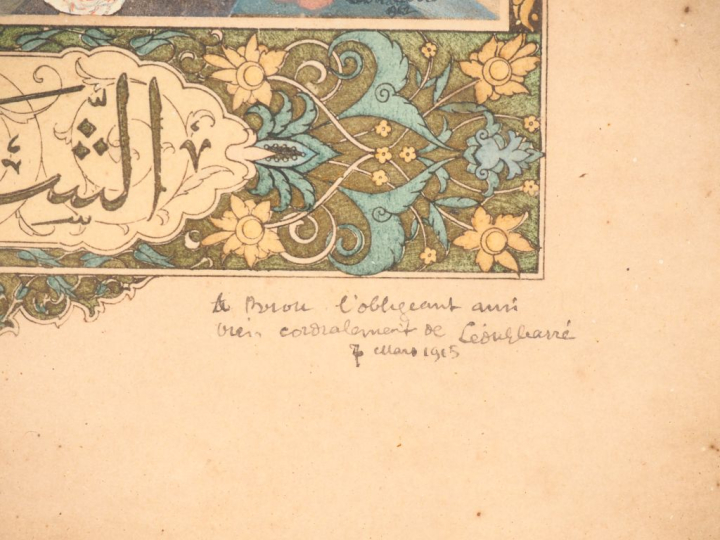 الش
A Birou l'obligeant ami
bien cordialement de Léon Carré
7 Mars 1915